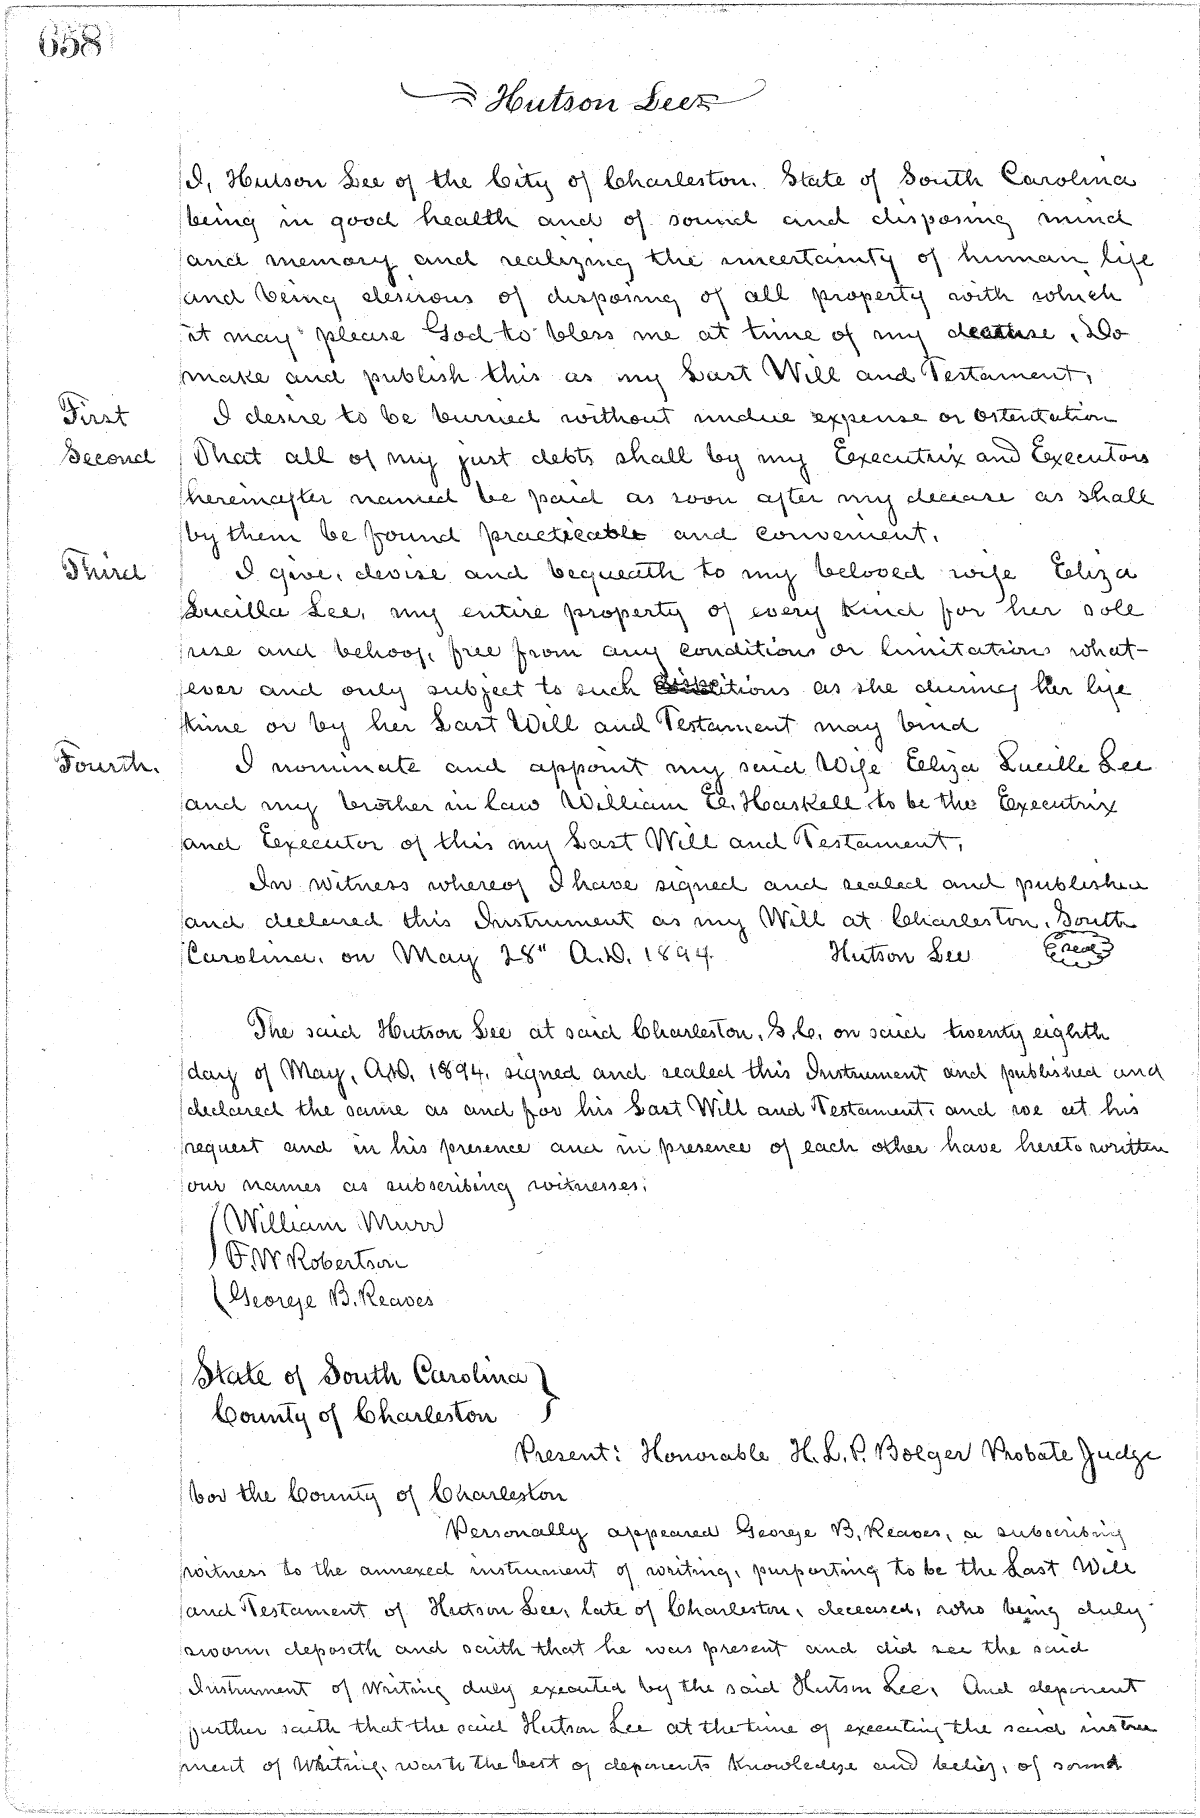 658
Hutson Lee
I, Hutson Lee of the City of Charleston. State of South Carolina
being in good health and of sound and disposing mind
and memory and realizing the uncertainty of human life
and being desirous of disposing of all property with which
it may please God to bless me at time of my decease, Do
make and publish this as my Last Will and Testament,
First I desire to be burried without undue expense or ostentation
Second That all of my just debts shall by my Executrix and Executors
hereinafter named be paid as soon after my decease as shall
by them be found practicable and convenient.
Third I give, devise and bequeath to my beloved wife Eliza
Lucilla Lee, my entire property of every kind for her sole
use and behoof, free from any conditions or limitations what-
ever and only subject to such dispositions as she during her life
time or by her Last Will and Testament may bind
Fourth. I nominate and appoint my said Wife Eliza Lucille Lee
and my brother in law William E. Haskell to be the Executrix
and Executor of this my Last Will and Testament,
In witness whereof I have signed and sealed and published
and declared this Instrument as my Will at Charleston, South
Carolina, on May 28" A.D. 1894. Hutson Lee seal
The said Hutson Lee at said Charleston, S.C. on said twenty eighth
day of May, A.D. 1894, signed and sealed this Instrument and published and
declared the same as and for his Last Will and Testament, and we at his
request and in his presence and in presence of each other have hereto written
our names as subscribing witnesses.
William Murr
F. W Robertson
George B. Reaves
State of South Carolina }
County of Charleston
Present: Honorable H. L. P. Bolger Probate Judge
for the County of Charleston
Personally appeared George B. Reaves, a subscribing
witness to the annexed instrument of writing, purporting to be the Last Will
and Testament of Hutson Lee, late of Charleston, deceased, who being duly
sworn, deposeth and saith that he was present and did see the said
Instrument of Writing duly executed by the said Hutson Lee, And deponent
further saith that the said Hutson Lee at the time of executing the said instru
ment of Writing, was to the best of deponents knowledge and belief, of sound